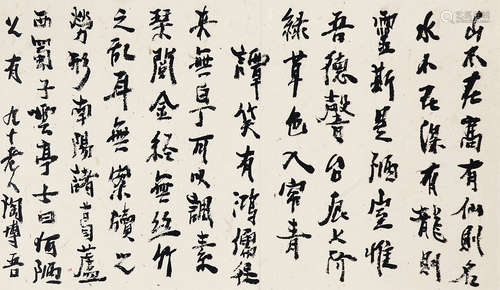 山不在高有仙則名
水不在深有龍則
靈斯是陋室惟
吾德馨苔痕上階
綠草色入帘青
譚笑有鴻儒往
来無白丁可以調素
琴閱金经無丝竹
之乱耳無案牘之
勞形南陽諸葛廬
西蜀子雲亭子曰何陋
之有 九十老人陶博吾